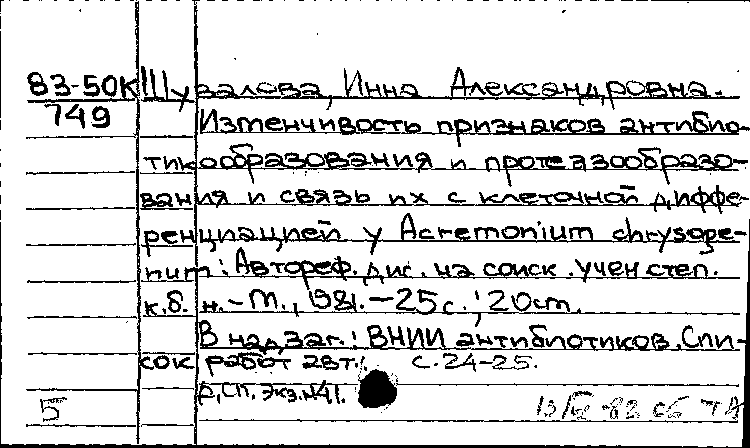 83-50К Шувалова, Инна Александровна.
749 Изменчивость признаков антибио-
тикообразования и протеазообразо-
вания и связь их с клеточной диффе-
ренциацией у Acremonium chrysoge-
num: Автореф. дис. на соиск. учен. степ.
к.б.н. - М., 1981. - 25 с.; 20 cm.
В надзаг.: ВНИИ антибиотиков. Спи-
сок работ авт.: с. 24-25.
ДСП. экз. №41.
5